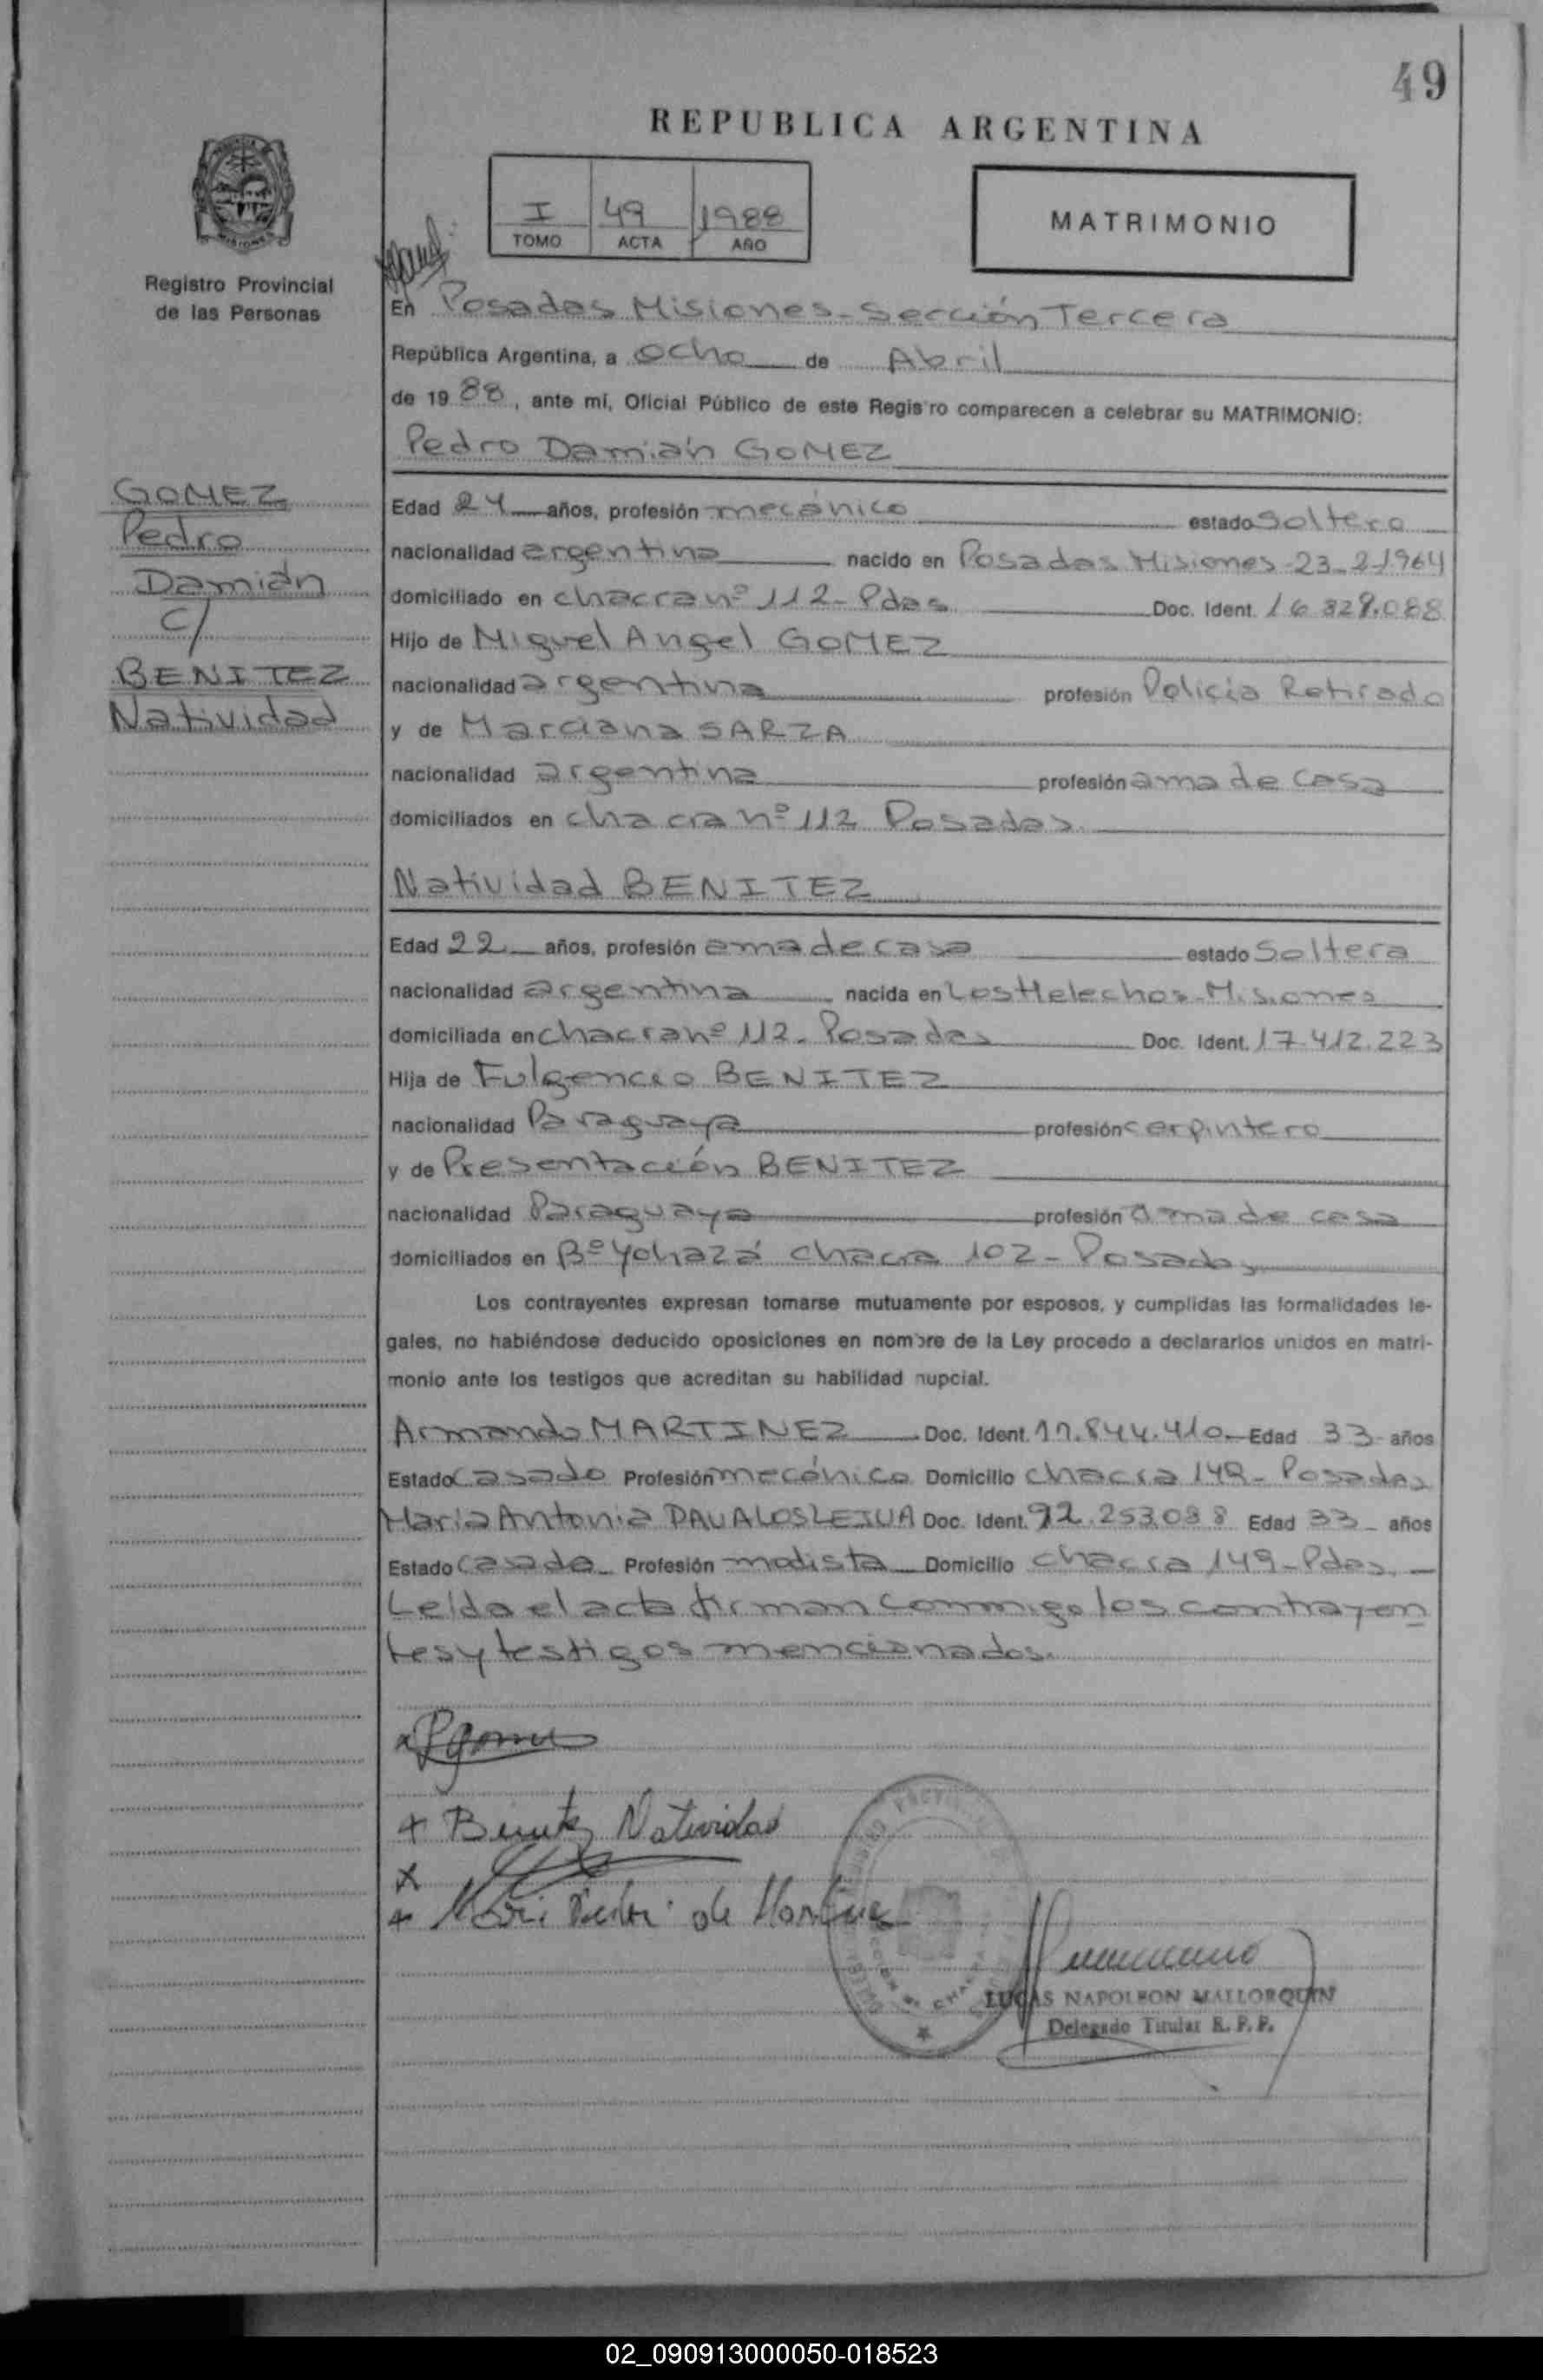 49
REPUBLICA ARGENTINA
I 49 1988
TOMO ACTA AÑO
MATRIMONIO
MISIONES
Registro Provincial
de las Personas
En Posadas Misiones - Sección Tercera
República Argentina, a ocho de Abril
de 1988, ante mí, Oficial Público de este Regis ro comparecen a celebrar su MATRIMONIO:
Pedro Damián GOMEZ
GOMEZ
Pedro
Damián
c/
BENITEZ
Natividad
Edad 24 años, profesión mecánico estado Soltero
nacionalidad argentina nacido en Posadas Misiones - 23-2-1964
domiciliado en chacra nº 112 - Pdas Doc. Ident. 16.829.088
Hijo de Miguel Angel GOMEZ
nacionalidad argentina profesión Policia Retirado
y de Marciana SARZA
nacionalidad argentina profesión ama de casa
domiciliados en chacra nº 112 Posadas
Natividad BENITEZ
Edad 22 años, profesión ama de casa estado Soltera
nacionalidad argentina nacida en Los Helechos - Misiones
domiciliada en chacra nº 112 - Posadas Doc. Ident. 17.412.223
Hija de Fulgencio BENITEZ
nacionalidad Paraguaya profesión carpintero
y de Presentación BENITEZ
nacionalidad Paraguaya profesión ama de casa
domiciliados en Bº Yohazá chacra 102 - Posadas
Los contrayentes expresan tomarse mutuamente por esposos, y cumplidas las formalidades le-
gales, no habiéndose deducido oposiciones en nombre de la Ley procedo a declararlos unidos en matri-
monio ante los testigos que acreditan su habilidad nupcial.
Armando MARTINEZ Doc. Ident. 11.844.410 Edad 33 años
Estado casado Profesión mecánico Domicilio chacra 149 - Posadas
Maria Antonia DAVALOS LEIVA Doc. Ident. 92.253.088 Edad 33 años
Estado casada Profesión modista Domicilio chacra 149 - Pdas.
Leída el acta firman conmigo los contrayen
tes y testigos mencionados.
Pgomez
+ Benitez Natividad
x
+ de Martinez
LUCAS NAPOLEON MALLORQUIN
Delegado Titular R. P. P.
02_090913000050-018523